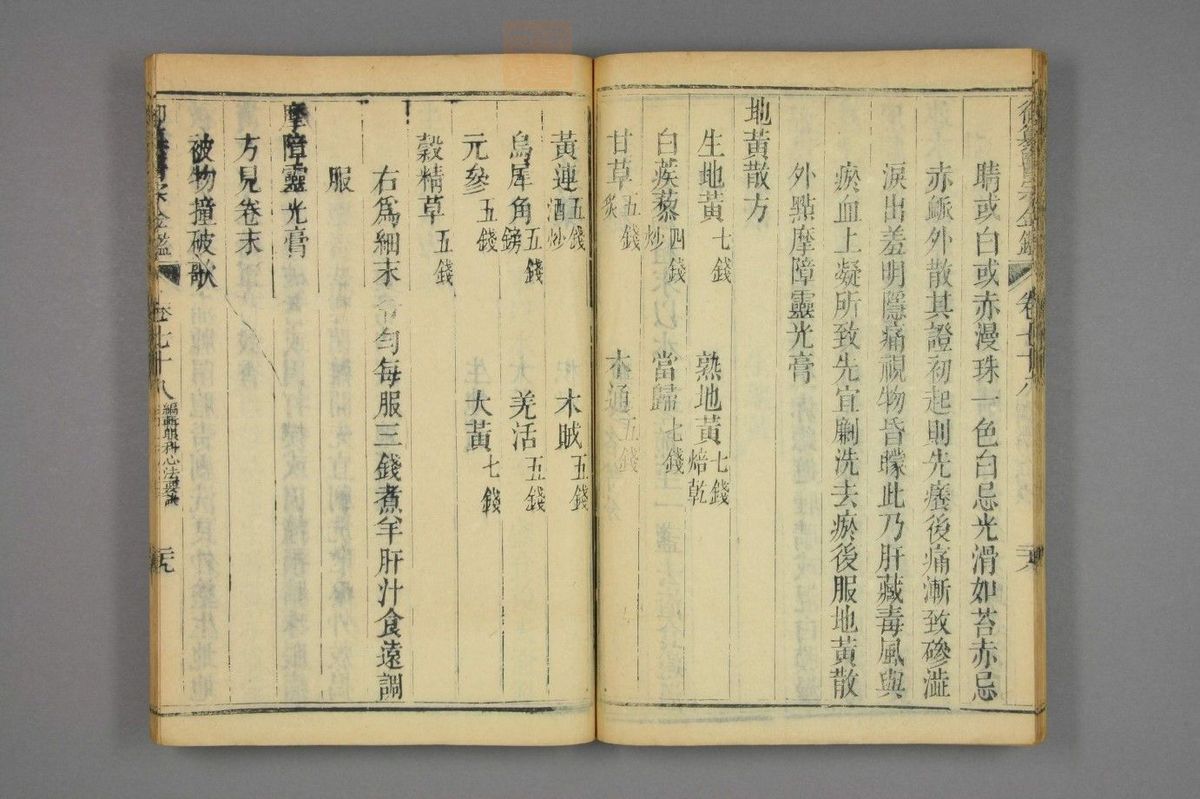 御纂醫宗金鑑 卷七十八 二十八
睛或白或赤漫珠一色白忌光滑如苔赤忌
赤脈外散其證初起則先癢後痛漸致磣澁
淚出羞明隱痛視物昏矇此乃肝藏毒風與
瘀血上凝所致先宜劆洗去瘀後服地黃散
外點摩障靈光膏
地黃散方
生地黃七錢 熟地黃七錢焙乾
白蒺藜四錢炒 當歸七錢
甘草五錢炙 木通五錢
黃連五錢酒炒 木賊五錢
烏犀角五錢鎊 羌活五錢
元參五錢 大黃七錢
穀精草五錢
右為細末 勻每服三錢煮羊肝汁食遠調
服
摩障靈光膏
方見卷末
被物撞破歌
御纂醫宗金鑑 卷七十八 編輯眼科心法要訣 二十九